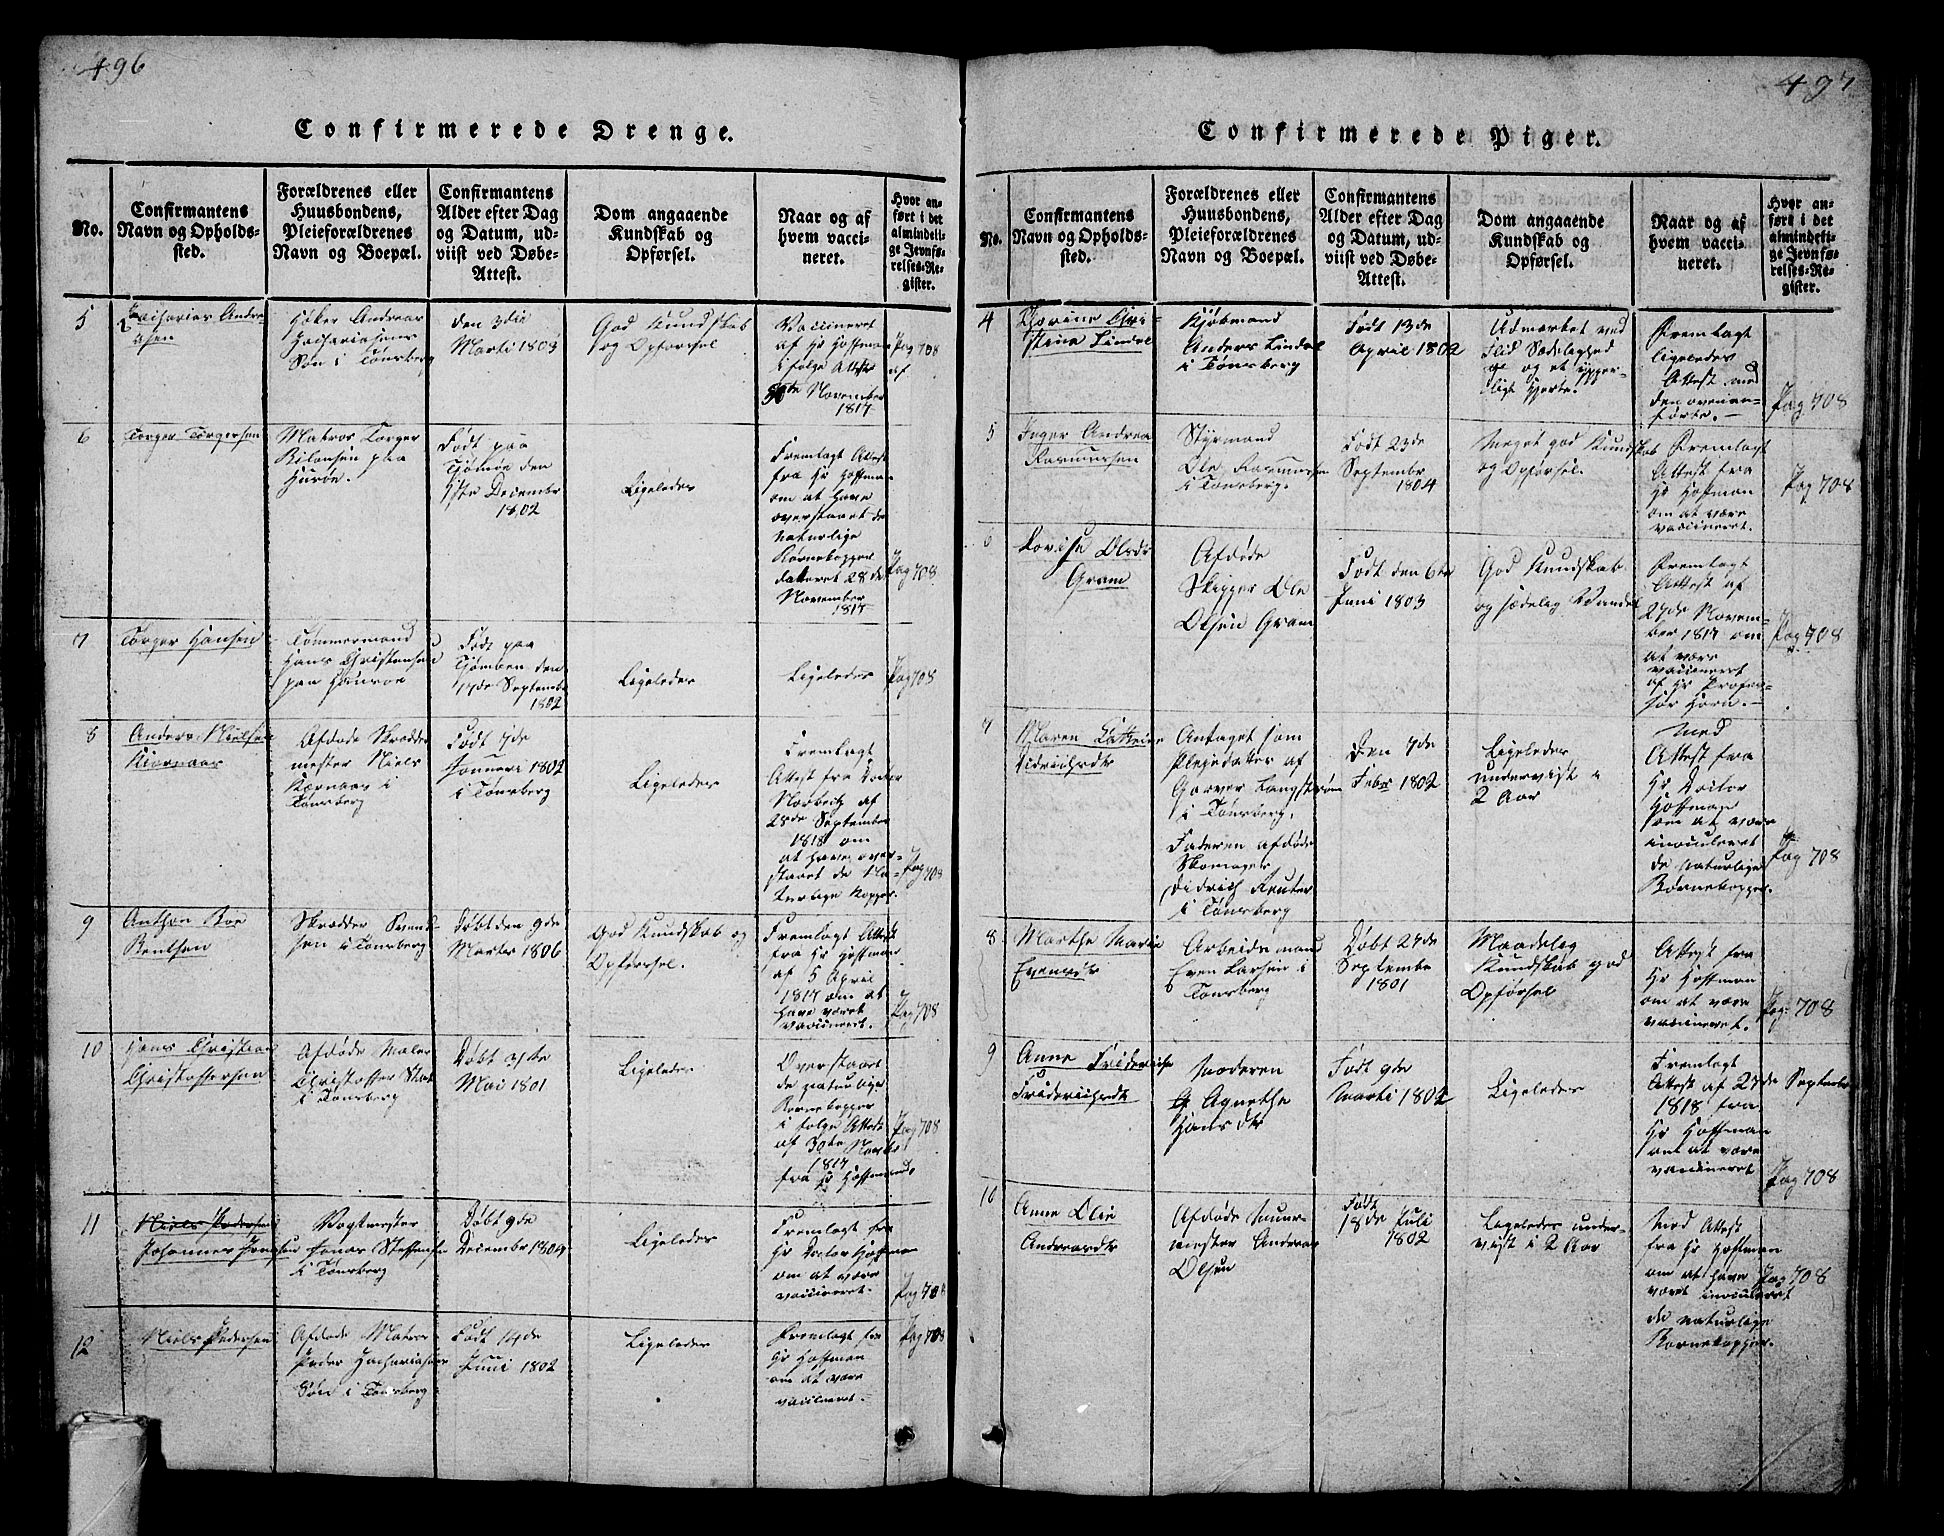 496
Confirmerede Drenge.
No.
Confirmantens
Navn og Opholds-
sted.
Forældrenes eller
Huusbondens,
Pleieforældrenes
Navn og Boepæl.
Confirmantens
Alder efter Dag
og Datum, ud-
viist ved Døbe-
Attest.
Dom angaaende
Kundskab og
Opførsel.
Naar og af
hvem vacci-
neret.
Hvor an-
ført i det
almindeli-
ge Jevnfø-
relses-Re-
gister.
5
Zacharias Andre-
asen
Høker Andreas
Zachariasens
Søn i Tønsberg
den 3die
Marti 1803
God Kundskab
og Opførsel
Vaccineret
af Hr Hoffman
i følge Attest
November
1817
Pag 708
6
Torger Torgersen
Matros Torger
paa
Født paa
Tjømøe den
Decembr
1802
Ligeledes
Fremlagt Attest
fra Hr Hoffman
om at have
overstaaet de
naturlige
Børnekopper
dateret 28de
November
1817
Pag 708
7
Torger Hansen
Tømmermand
Hans Christensen
paa
Født paa
den
17de Septembr
1802
Ligeledes
Ligeledes
Pag 708
8
Anders Nielsen
Kiærnaas
Afdøde Skrædder
mester Niels
Kærnaas i
Tønsberg
Født 7de
Januari 1802
i Tønsberg
Ligeledes
Fremlagt
Attest fra Docter
af
28de September
1818 om
at have over-
staaet de na-
turlige Kopper.
Pag 708
9
Anthon Boe
Bentsen
Skrædder Svend-
sen i Tønsberg
Døbt den 9de
Martes 1806
God Kundskab og
Opførsel.
Fremlagt Attest
fra Hr Hoffman
af 5 April
1817 om at
have været
vaccineret.
Pag 708
10
Hans Christian
Christoffersen
Afdøde Maler
Christoffer
i Tønsberg
Døbt
Mai 1801
Ligeledes
Overstaaet
de naturlige
Børnekopper
i følge Attest
af 30te Novbr
1817
fra Hr Hoffmand
Pag 708
11
Niels Pedersen
Johannes Jonassen
Vogtmester
Jonas Steffensen
i Tønsberg
Døbt 9de
December 1804
Ligeledes
Fremlagt fra
Hr Doctor Hoffman
om at være
vaccineret.
Pag 708
12
Niels Pedersen
Afdøde Matros
Peder Zacharias
Søn i Tønsberg
Født 14de
Juni 1802
Ligeledes
Fremlagt fra
Hr Hoffman
om at være
vaccineret.
Pag 708
497
Confirmerede Piger.
No.
Confirmantens
Navn og Opholds-
sted.
Forældrenes eller
Huusbondens,
Pleieforældrenes
Navn og Boepæl.
Confirmantens
Alder efter Dag
og Datum, ud-
viist ved Døbe-
Attest.
Dom angaaende
Kundskab og
Opførsel.
Naar og af
hvem vacci-
neret.
Hvor an-
ført i det
almindeli-
ge Jevnfø-
relses-Re-
gister.
4
Thorine Chri-
stine Lindal
Kjøbmand
Anders Lindal
i Tønsberg
Født 13de
April 1802
Udmærket ved
Flid Sædelighed
og et ypper-
ligt Hjerte.
Fremlagt
ligeledes
Attest med
den ovenan-
førte.
Pag 708
5
Inger Andrea
Rasmussen
Styrmand
Ole Rasmussen
i Tønsberg.
Født 23de
September
1804
Meget god Kundskab
og Opførsel.
Fremlagt
Attest fra
Hr Hoffman
om at være
vaccineret.
Pag 708
6
Lovise Olsdtr
Gram
Afdøde
Skipper Ole
Olsen Gram
Født den 6te
Juni 1803
God Kundskab
og sædelig Vandel
Fremlagt
Attest af
27de Novem-
ber 1817 om
at være
vaccineret
af Hr Profes-
sor Horn.
Pag 708
7
Maren Cathrine
Diderichsdtr
Antaget som
Pleiedatter af
Garver Langstrøm
i Tønsberg.
Faderen afdøde
Skomager
Didrich Reuter
i Tønsberg
Den 7de
Febr 1802
Ligeledes
underviist i
2 Aar
Med
Attest fra
Hr Doctor
Hoffman
om at være
inoculeret
de naturlige
Børnekopper.
Pag 708
8
Marthe Marie
Evensdtr
Arbeidsmand
Even Larsen i
Tønsberg
Døbt 27de
Septembr
1801
Maadelig
Kundskab god
Opførsel
Attest fra
Hr Hoffman
om at være
vaccineret.
Pag 708
9
Anne Friderichse
Friderichsdtr
Moderen
Agnethe
Hansdtr
Født 9de
Marti 1802
Ligeledes
Fremlagt
Attest af 27de September
1818 fra
Hr Hoffman
om at være
vaccineret
Pag 708
10
Anne Olie
Andreasdtr
Afdøde Muur-
mester Andreas
Olsen
Født
18de Juli
1802
Ligeledes under-
vist i 2 Aar
Med Attest
fra Hr Hoffman
om at have
været inoculeret
de naturlige
Børnekopper.
Pag 708